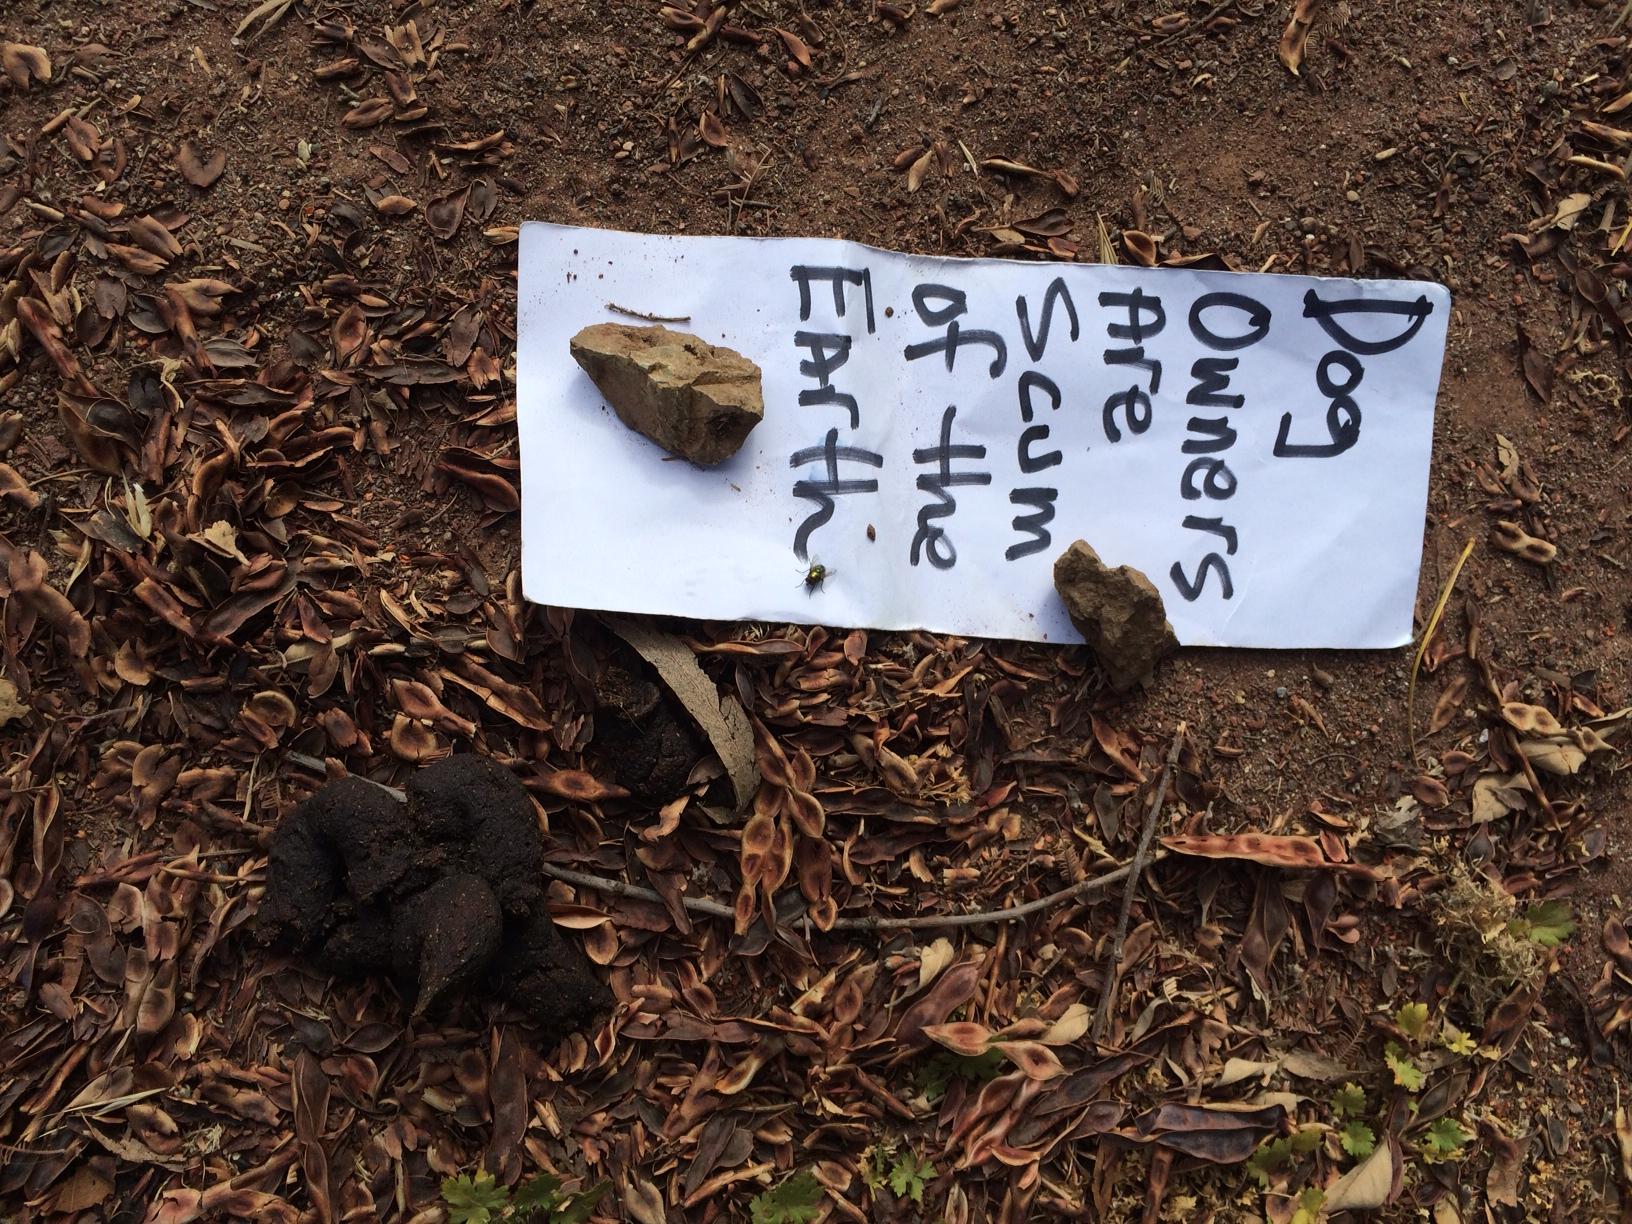 Dog
Owners
Are
Scum
of the
EArth